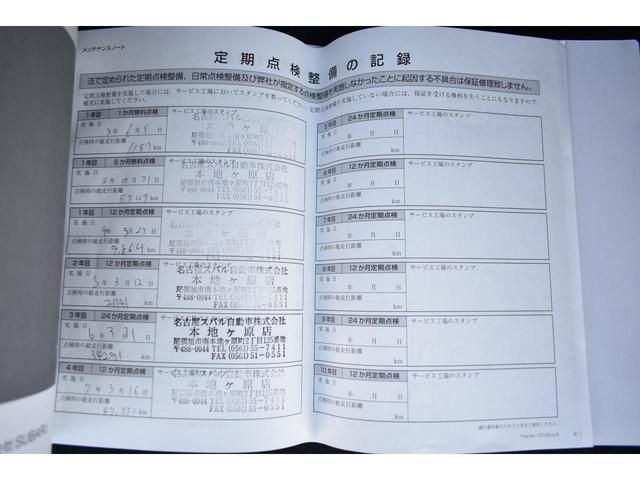 メンテナンスノート
定期点検整備の記録
法で定められた定期点検整備、日常点検整備及び弊社が指定する点検整備を実施しなかったことに起因する不具合は保証修理致しません。
定期点検整備を実施した場合には、サービス工場においてスタンプを貰ってください。定期点検整備を実施していない場合には、保証を受ける権利を失うことにもなりますので、
確実に実施してください。
1年目 1か月無料点検 サービス工場のスタンプ
実施日 3年6月5日
点検時の総走行距離
1187 km
名古屋スバル自動車株式会社
本地ヶ原店
尾張旭市南本地ヶ原町2丁目125番地
〒488-0044 TEL(0561)55-7411
FAX(0561)51-0551
1年目 6か月無料点検 サービス工場のスタンプ
実施日 3年10月31日
点検時の総走行距離
km
名古屋スバル自動車株式会社
本地ヶ原店
尾張旭市南本地ヶ原町2丁目125番地
〒488-0044 TEL(0561)55-7411
FAX(0561)51-0551
1年目 12か月定期点検 サービス工場のスタンプ
実施日 4年3月27日
点検時の総走行距離
9,864 km
〒488-0044
2年目 12か月定期点検 サービス工場のスタンプ
実施日 5年3月12日
点検時の総走行距離
21141 km
名古屋スバル自動車株式会社
本地ヶ原店
尾張旭市南本地ヶ原町2丁目125番地
〒488-0044 TEL(0561)55-7411
FAX(0561)51-0551
3年目 24か月定期点検 サービス工場のスタンプ
実施日 6 3 31
点検時の総走行距離
34291 km
名古屋スバル自動車株式会社
本地ヶ原店
尾張旭市南本地ヶ原町2丁目125番地
〒488-0044 TEL(0561)55-7411
FAX(0561)51-0551
4年目 12か月定期点検 サービス工場のスタンプ
実施日 7年3月16日
点検時の総走行距離
km
本地ヶ原店
5年目 24か月定期点検 サービス工場のスタンプ
実施日 年 月 日
点検時の総走行距離
km
6年目 12か月定期点検 サービス工場のスタンプ
実施日 年 月 日
点検時の総走行距離
km
7年目 24か月定期点検 サービス工場のスタンプ
実施日 年 月 日
点検時の総走行距離
km
8年目 12か月定期点検 サービス工場のスタンプ
実施日 年 月 日
点検時の総走行距離
km
9年目 24か月定期点検 サービス工場のスタンプ
実施日 年 月 日
点検時の総走行距離
km
10年目 12か月定期点検 サービス工場のスタンプ
実施日 年 月 日
点検時の総走行距離
km
SUBARU